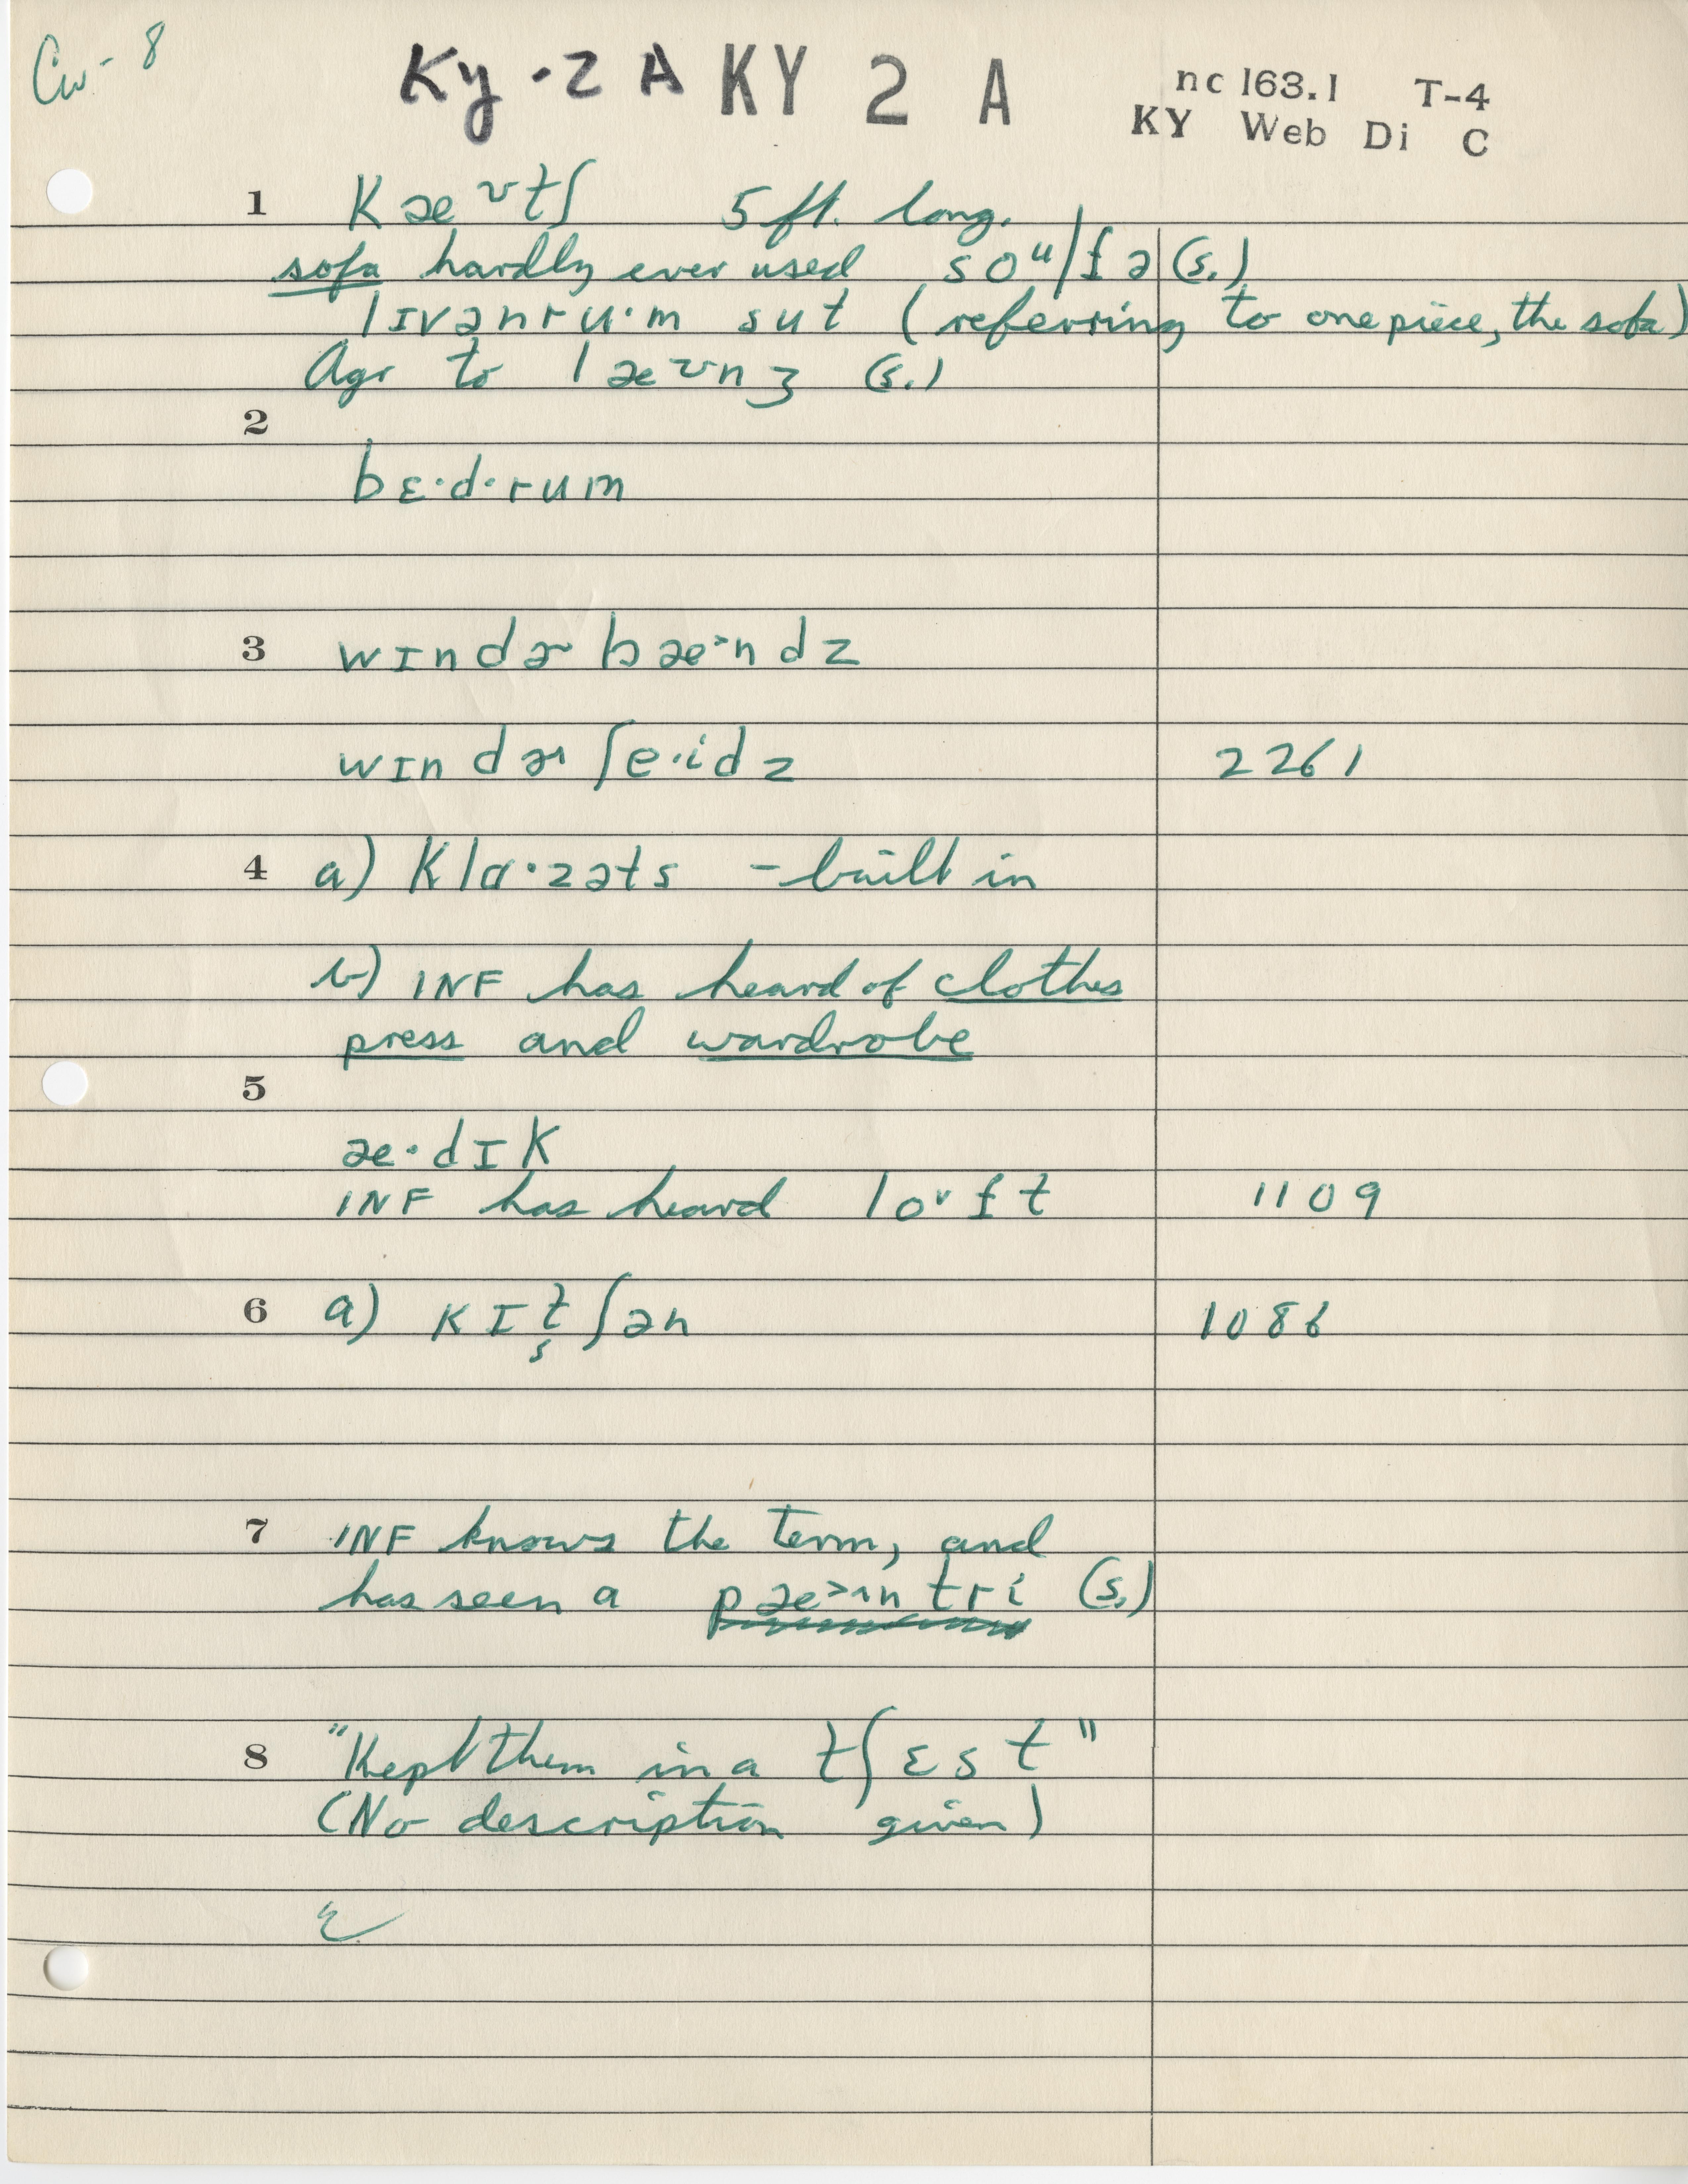 Cw-8
Ky-2A KY 2 A
nc 163.1 T-4
KY Web Di C
1 kæʊtʃ 5 ft. long.
sofa hardly ever used soᵘ/fə (s.)
lɪvənru·m sut (referring to one piece, the sofa)
Agr to læʊnʒ (s.)
2
bɛ·d·rum
3 wɪndɚ bæ˃ndz
wɪndɚ ʃe·idz 2261
4 a) klɑ·zəts - built in
b) INF has heard of clothes
press and wardrobe
5
æ·dɪk
INF has heard loᵛft 1109
6 a) kɪt̬ʃən 1086
7 INF knows the term, and
has seen a pæ˃ntri (s.)
8 "Kept them in a tʃɛst"
(No description given)